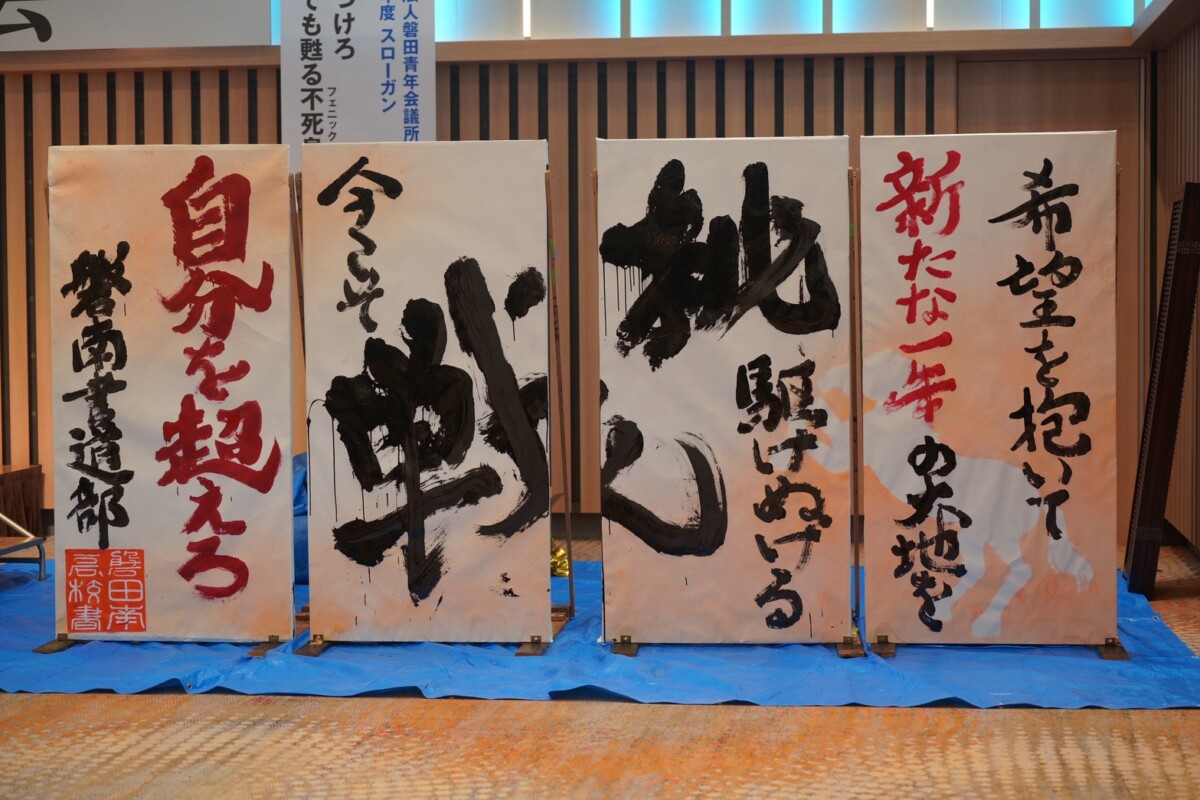 人磐田青年会議所
年度 スローガン
つけろ
フェニック
ても甦る不死
希望を抱いて
新たな一年の大地を
駆けぬける
挑戦
今こそ
自分を超えろ
磐南書道部
磐田南
高校書